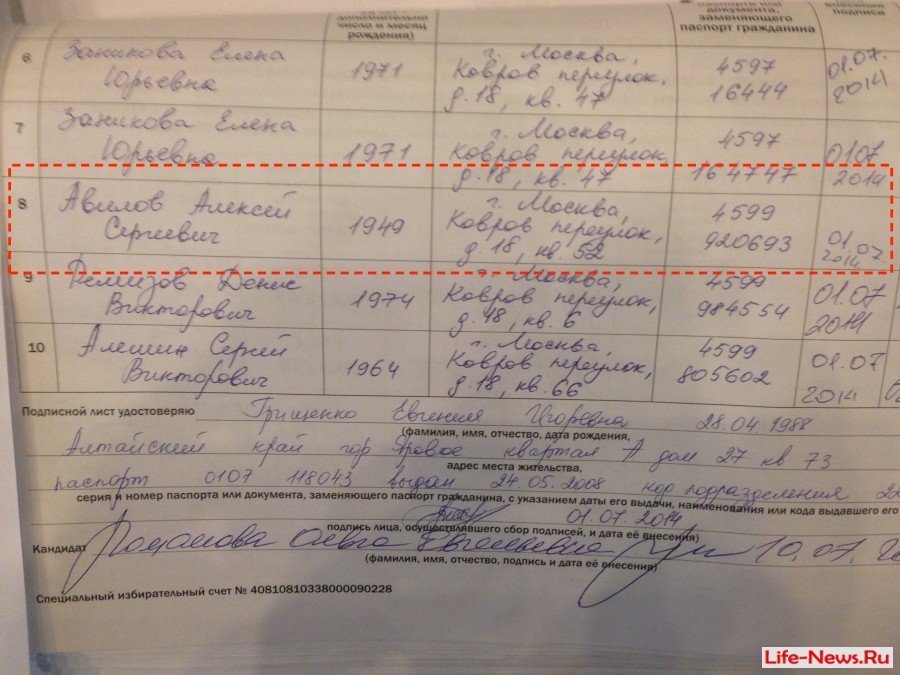 (дополнительно
число и месяц
рождения)
паспорта или
документа,
заменяющего
паспорт гражданина
внесения
подписи
6 Заникова Елена Юрьевна 1971 г. Москва, Ковров переулок, д.18, кв. 47 4597 16444 01.07. 2014
7 Заникова Елена Юрьевна 1971 г. Москва, Ковров переулок, д.18, кв. 47 4597 164747 01.07 2014
8 Авилов Алексей Сергеевич 1949 г. Москва, Ковров переулок, д.18, кв. 52 4599 920693 01.07. 2014
9 Ремизов Денис Викторович 1974 г. Москва, Ковров переулок, д.18, кв. 6 4599 984554 01.07 2014
10 Алешин Сергей Викторович 1964 г. Москва, Ковров переулок, д.18, кв. 66 4599 805602 01.07 2014
Подписной лист удостоверяю Грищенко Евгения Игоревна 28.04.1988
(фамилия, имя, отчество, дата рождения,
Алтайский край гор Яровое квартал А дом 27 кв 73
адрес места жительства,
паспорт 0107 118043 выдан 24.05.2008 код подразделения
серия и номер паспорта или документа, заменяющего паспорт гражданина, с указанием даты его выдачи, наименования или кода выдавшего его
01.07 2014
подпись лица, осуществлявшего сбор подписей, и дата её внесения)
Кандидат Романова Ольга Евгеньевна 10.07.
(фамилия, имя, отчество, подпись и дата её внесения)
Специальный избирательный счет № 40810810338000090228
Life-News.Ru